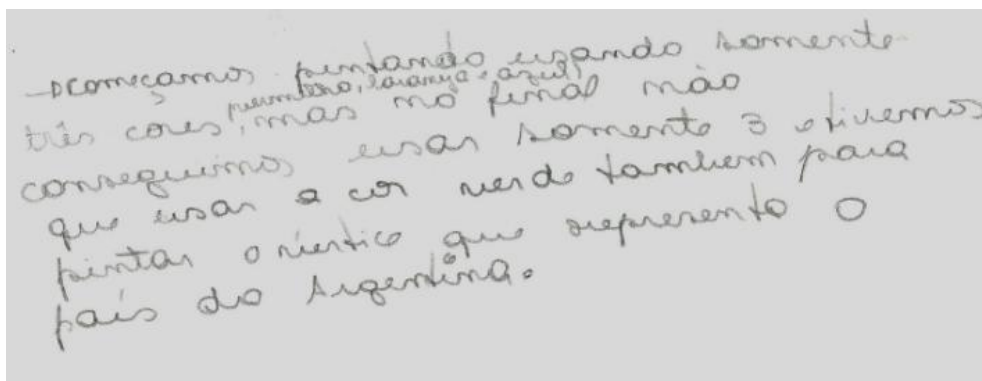 → começamos pintando usando somente
vermelho, laranja e azul
três cores, mas no final não
conseguimos usar somente 3 e tivemos
que usar a cor verde tambem para
pintar o vertice que representa o
país da Argentina.